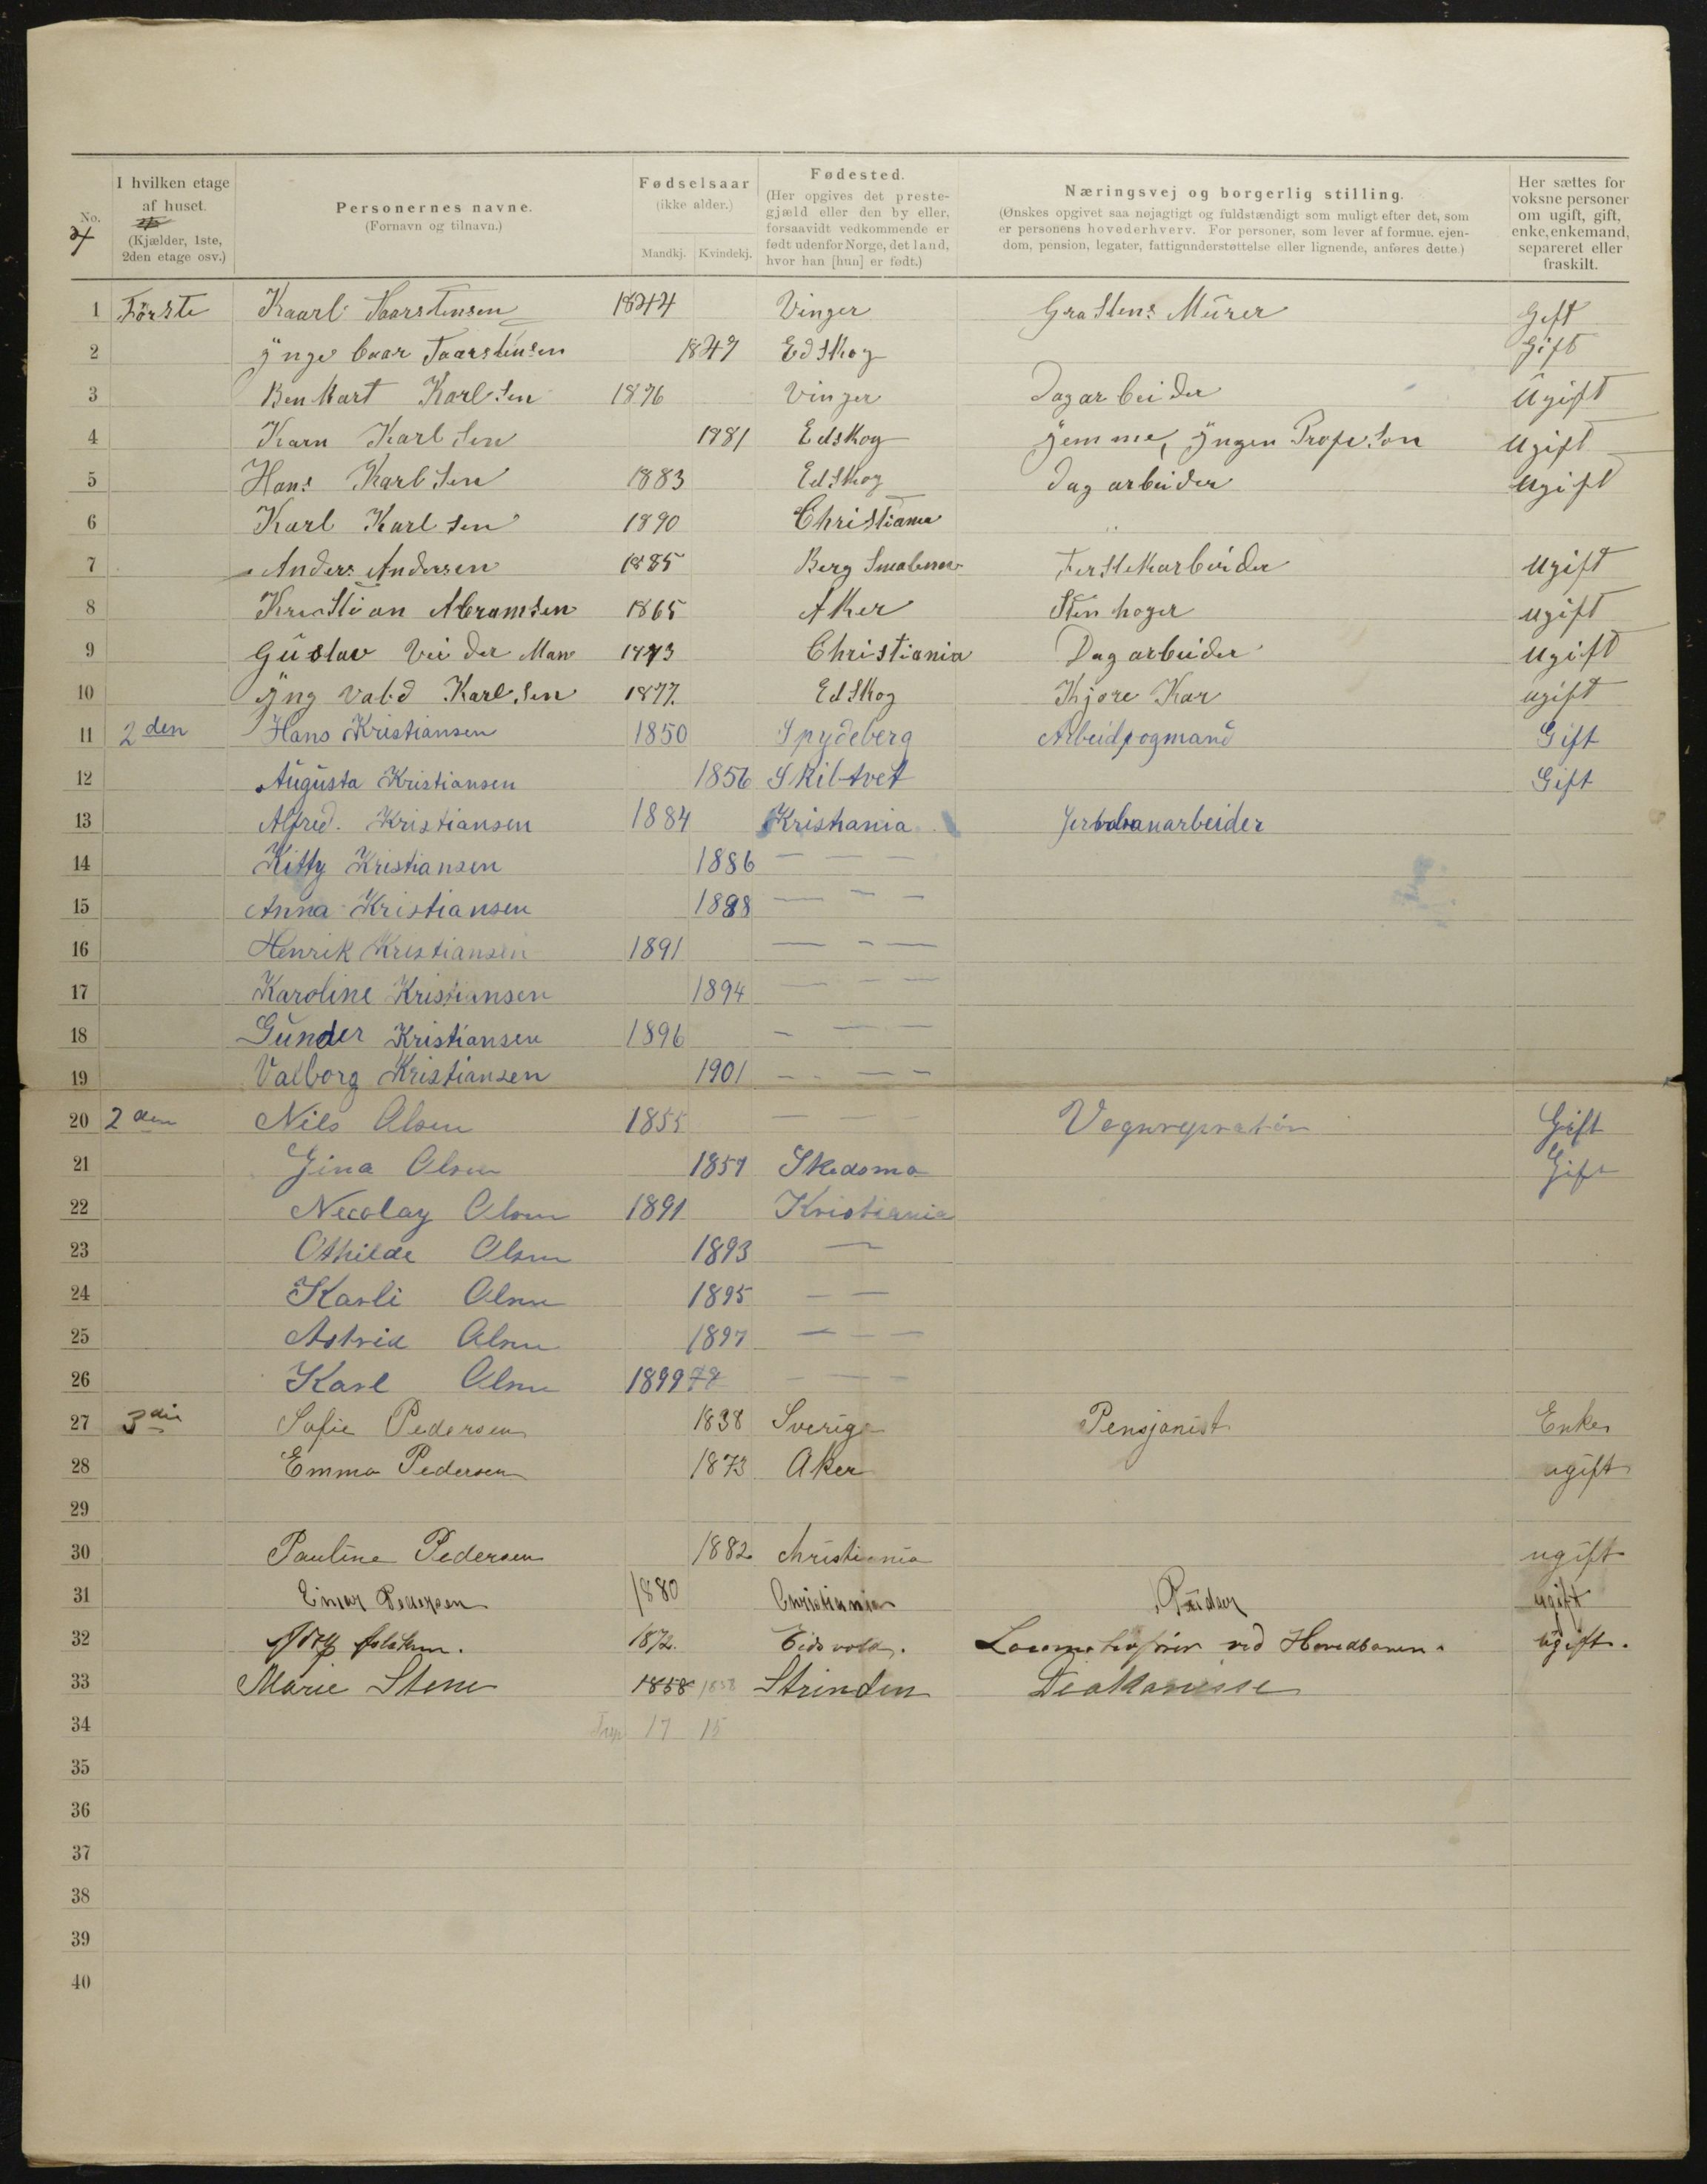 No. I hvilken etage af huset. (Kjælder, 1ste, 2den etage osv.) Personernes navne. (Fornavn og tilnavn.) Fødselsaar (ikke alder.) Mandkj. Kvindekj. Fødested. (Her opgives det prestegjæld eller den by eller, forsaavidt vedkommende er født udenfor Norge, det land, hvor han [hun] er født.) Næringsvej og borgerlig stilling. (Ønskes opgivet saa nøjagtigt og fuldstændigt som muligt efter det, som er personens hovederhverv. For personer, som lever af formue, ejendom, pension, legater, fattigunderstøttelse eller lignende, anføres dette.) Her sættes for voksne personer om ugift, gift, enke, enkemand, separeret eller fraskilt.
1 Förste Kaarl Taarstensen 1844 Vinger Gra Stens Mürer Gift
2 Ynge baar Taarstensen 1847 Edskog Gift
3 Ben hart Karlsen 1876 Vinger Dagarbeider Ügift
4 Karn Karlsen 1881 Edskog Jemme, Yngen Profeson Ugift
5 Hans Karlsen 1883 Edskog Dag arbeider Ugift
6 Karl Karlsen 1890 Christiania
7 Anders Andersen 1885 Berg ugift
8 Kristian Abramsen 1865 Aker Sten hoger ugift
9 Güstav Vei der Man Christiania Dag arbeider ugift
10 Yng vald Karlsen 1877. Edskog Kjøre Kar ugift
11 2den Hans Kristiansen 1850 Spydeberg Gift
12 Augusta Kristiansen 1856 Skibtvet Gift
13 Alfred. Kristiansen 1884 Kristiania Jerbanarbeider
14 Kitty Kristiansen 1886 — — —
15 Anna Kristiansen 1888 — — —
16 Henrik Kristiansen 1891 — — —
17 Karoline Kristiansen 1894 — — —
18 Gunder Kristiansen 1896 — — —
19 Valborg Kristiansen 1901 — — —
20 2den Nils Olsen 1855 — — — Vognrepratør Gift
21 Gina Olsen 1857 Skedsmo Gift
22 Necolay Olsen 1891 Kristiania
23 Othilde Olsen 1893 —
24 Karli Olsen 1895 — —
25 Astrid Olsen 1897 — — —
26 Karl Olsen 1899 — — —
27 3die Sofie Pedersen 1838 Sverige Pensjonist Enke
28 Emma Pedersen 1873 Aker ugift
29
30 Pauline Pedersen 1882 Christiania ugift
31 Einar Pedersen 1880 Christiania ugift
32 1872. Eidsvold. Locomotivfører ved Hovedbanen. ugift.
33 Marie Stene 1858 1858 Strinden Diakonisse
34 17 15
35
36
37
38
39
40